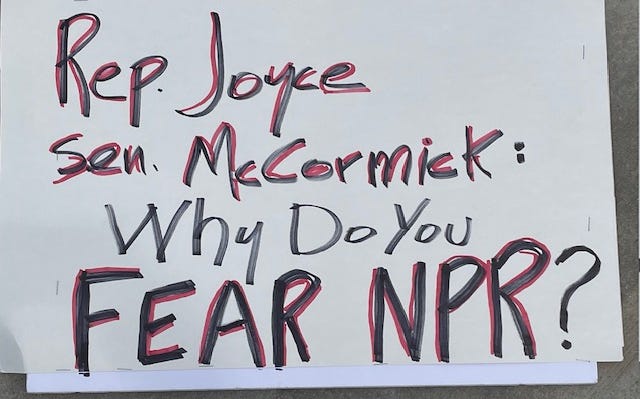 Rep. Joyce
Sen. McCormick:
Why Do You
FEAR NPR?